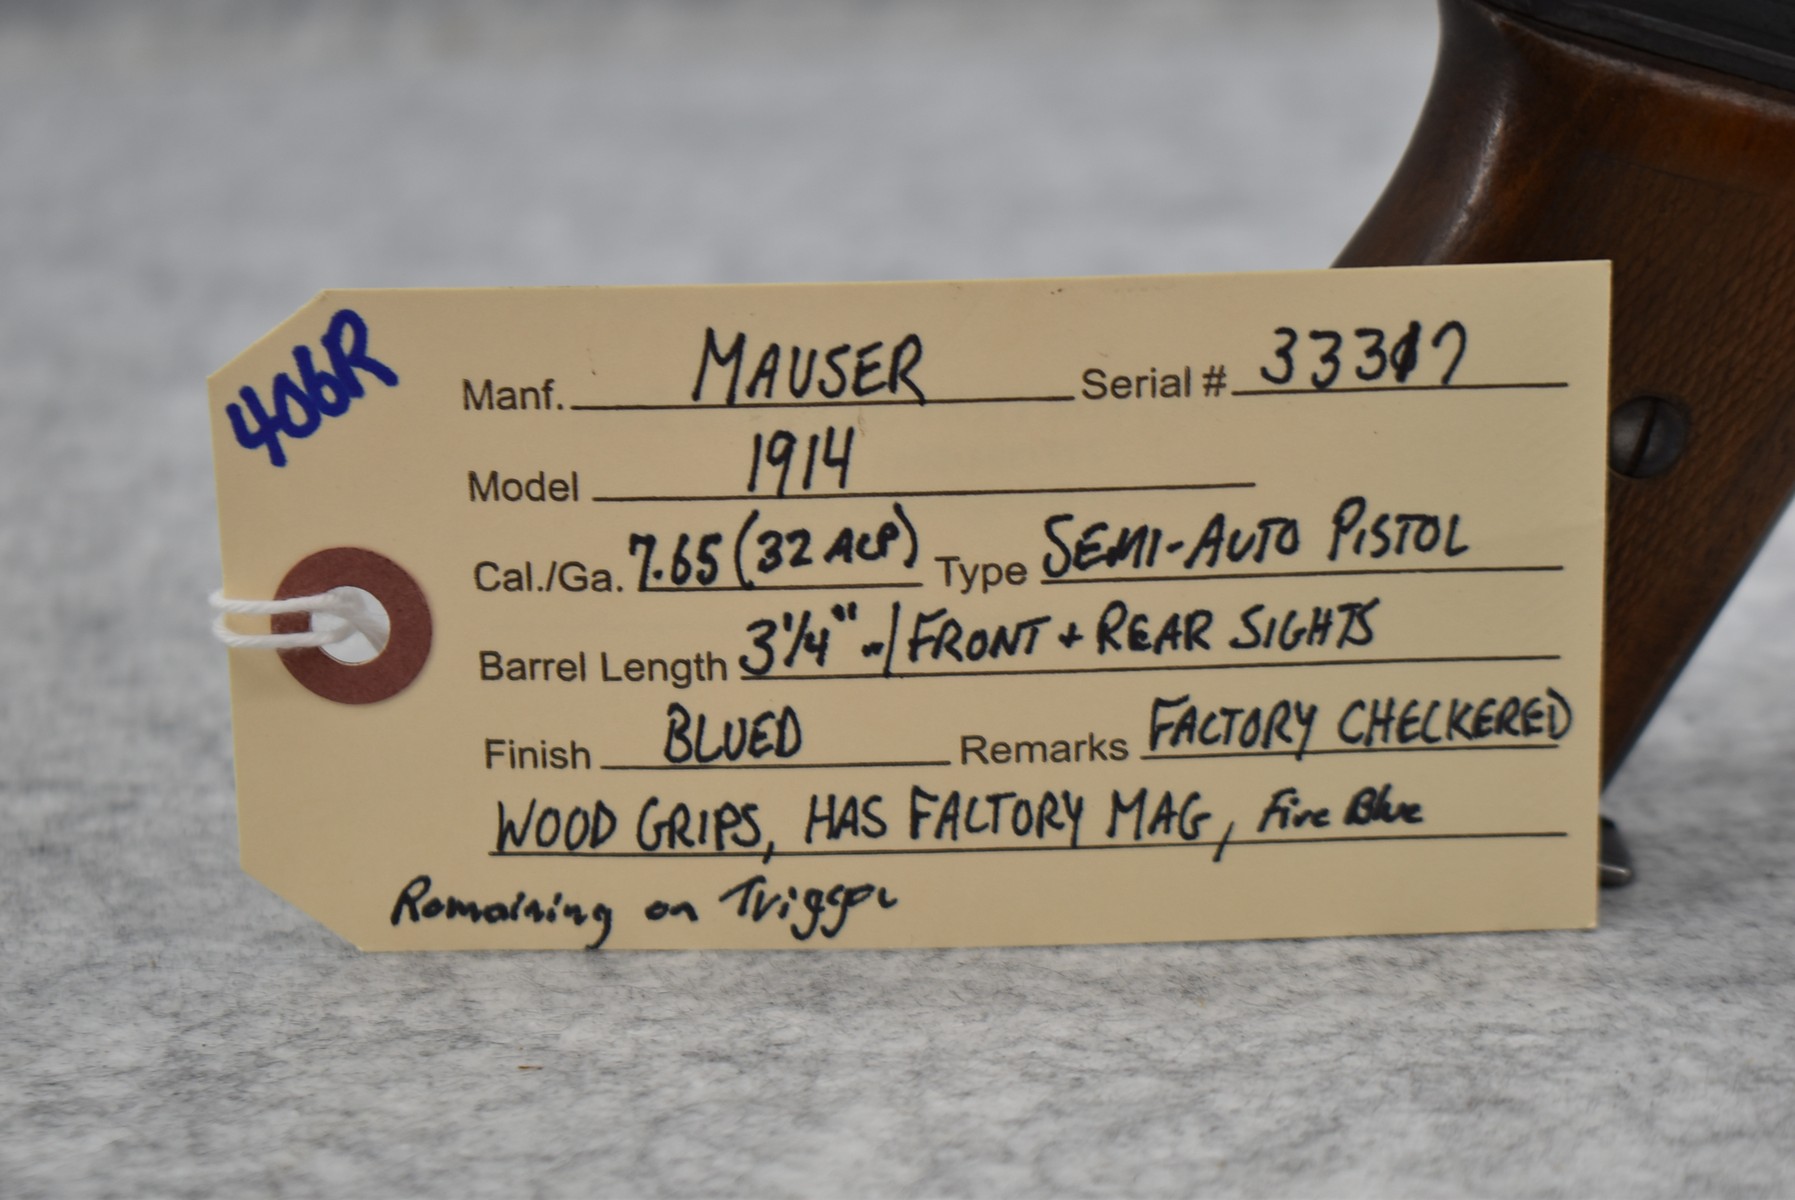 406R
Manf. MAUSER Serial # 33317
Model 1914
Cal./Ga. 7.65 (32 ACP) Type SEMI-AUTO PISTOL
Barrel Length 3 1/4" w/ FRONT + REAR SIGHTS
Finish BLUED Remarks FACTORY CHECKERED
WOOD GRIPS, HAS FACTORY MAG, Fire Blue
Remaining on Trigger